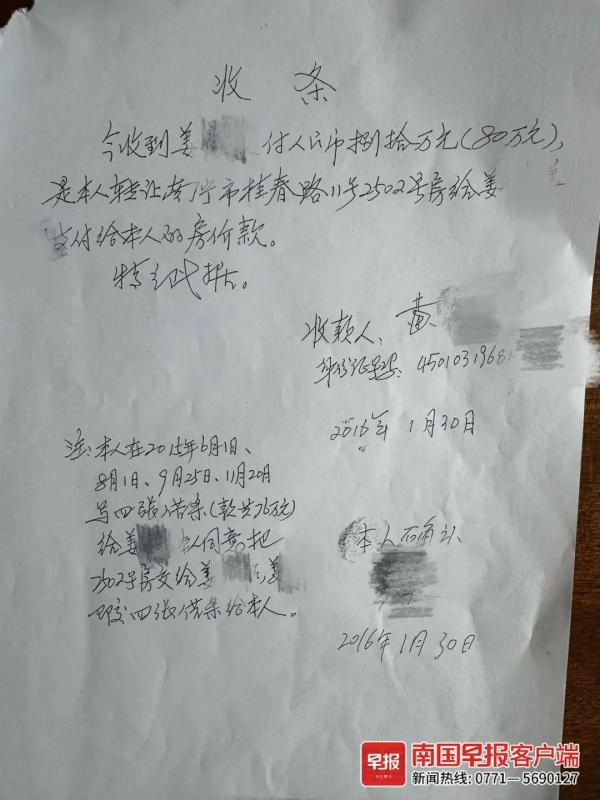 收 条
今收到姜 付人民币捌拾万元(80万元),
是本人转让南宁市桂春路11号2502号房给姜
支付给本人的房价款。
特立此据。
收款人: 黄
身份证号码: 45010319681
2016年1月30日
注:本人在2015年6月1日、
8月1日、9月25日、11月20日
写四张借条(款共76万元)
给姜 同意把
2502号房交给姜 姜
四张借条给本人。
本人
2016年1月30日
早报
NEWS
南国早报客户端
新闻热线:0771—5690127